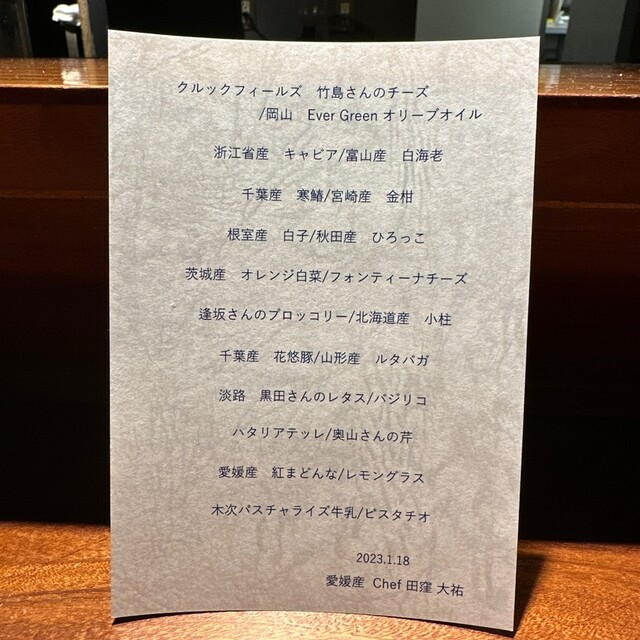 クルックフィールズ　竹島さんのチーズ
/岡山　Ever Green オリーブオイル
浙江省産　キャビア/富山産　白海老
千葉産　寒鰆/宮崎産　金柑
根室産　白子/秋田産　ひろっこ
茨城産　オレンジ白菜/フォンティーナチーズ
逢坂さんのブロッコリー/北海道産　小柱
千葉産　花悠豚/山形産　ルタバガ
淡路　黒田さんのレタス/バジリコ
ハタリアテッレ/奥山さんの芹
愛媛産　紅まどんな/レモングラス
木次パスチャライズ牛乳/ピスタチオ
2023.1.18
愛媛産 Chef 田窪 大祐